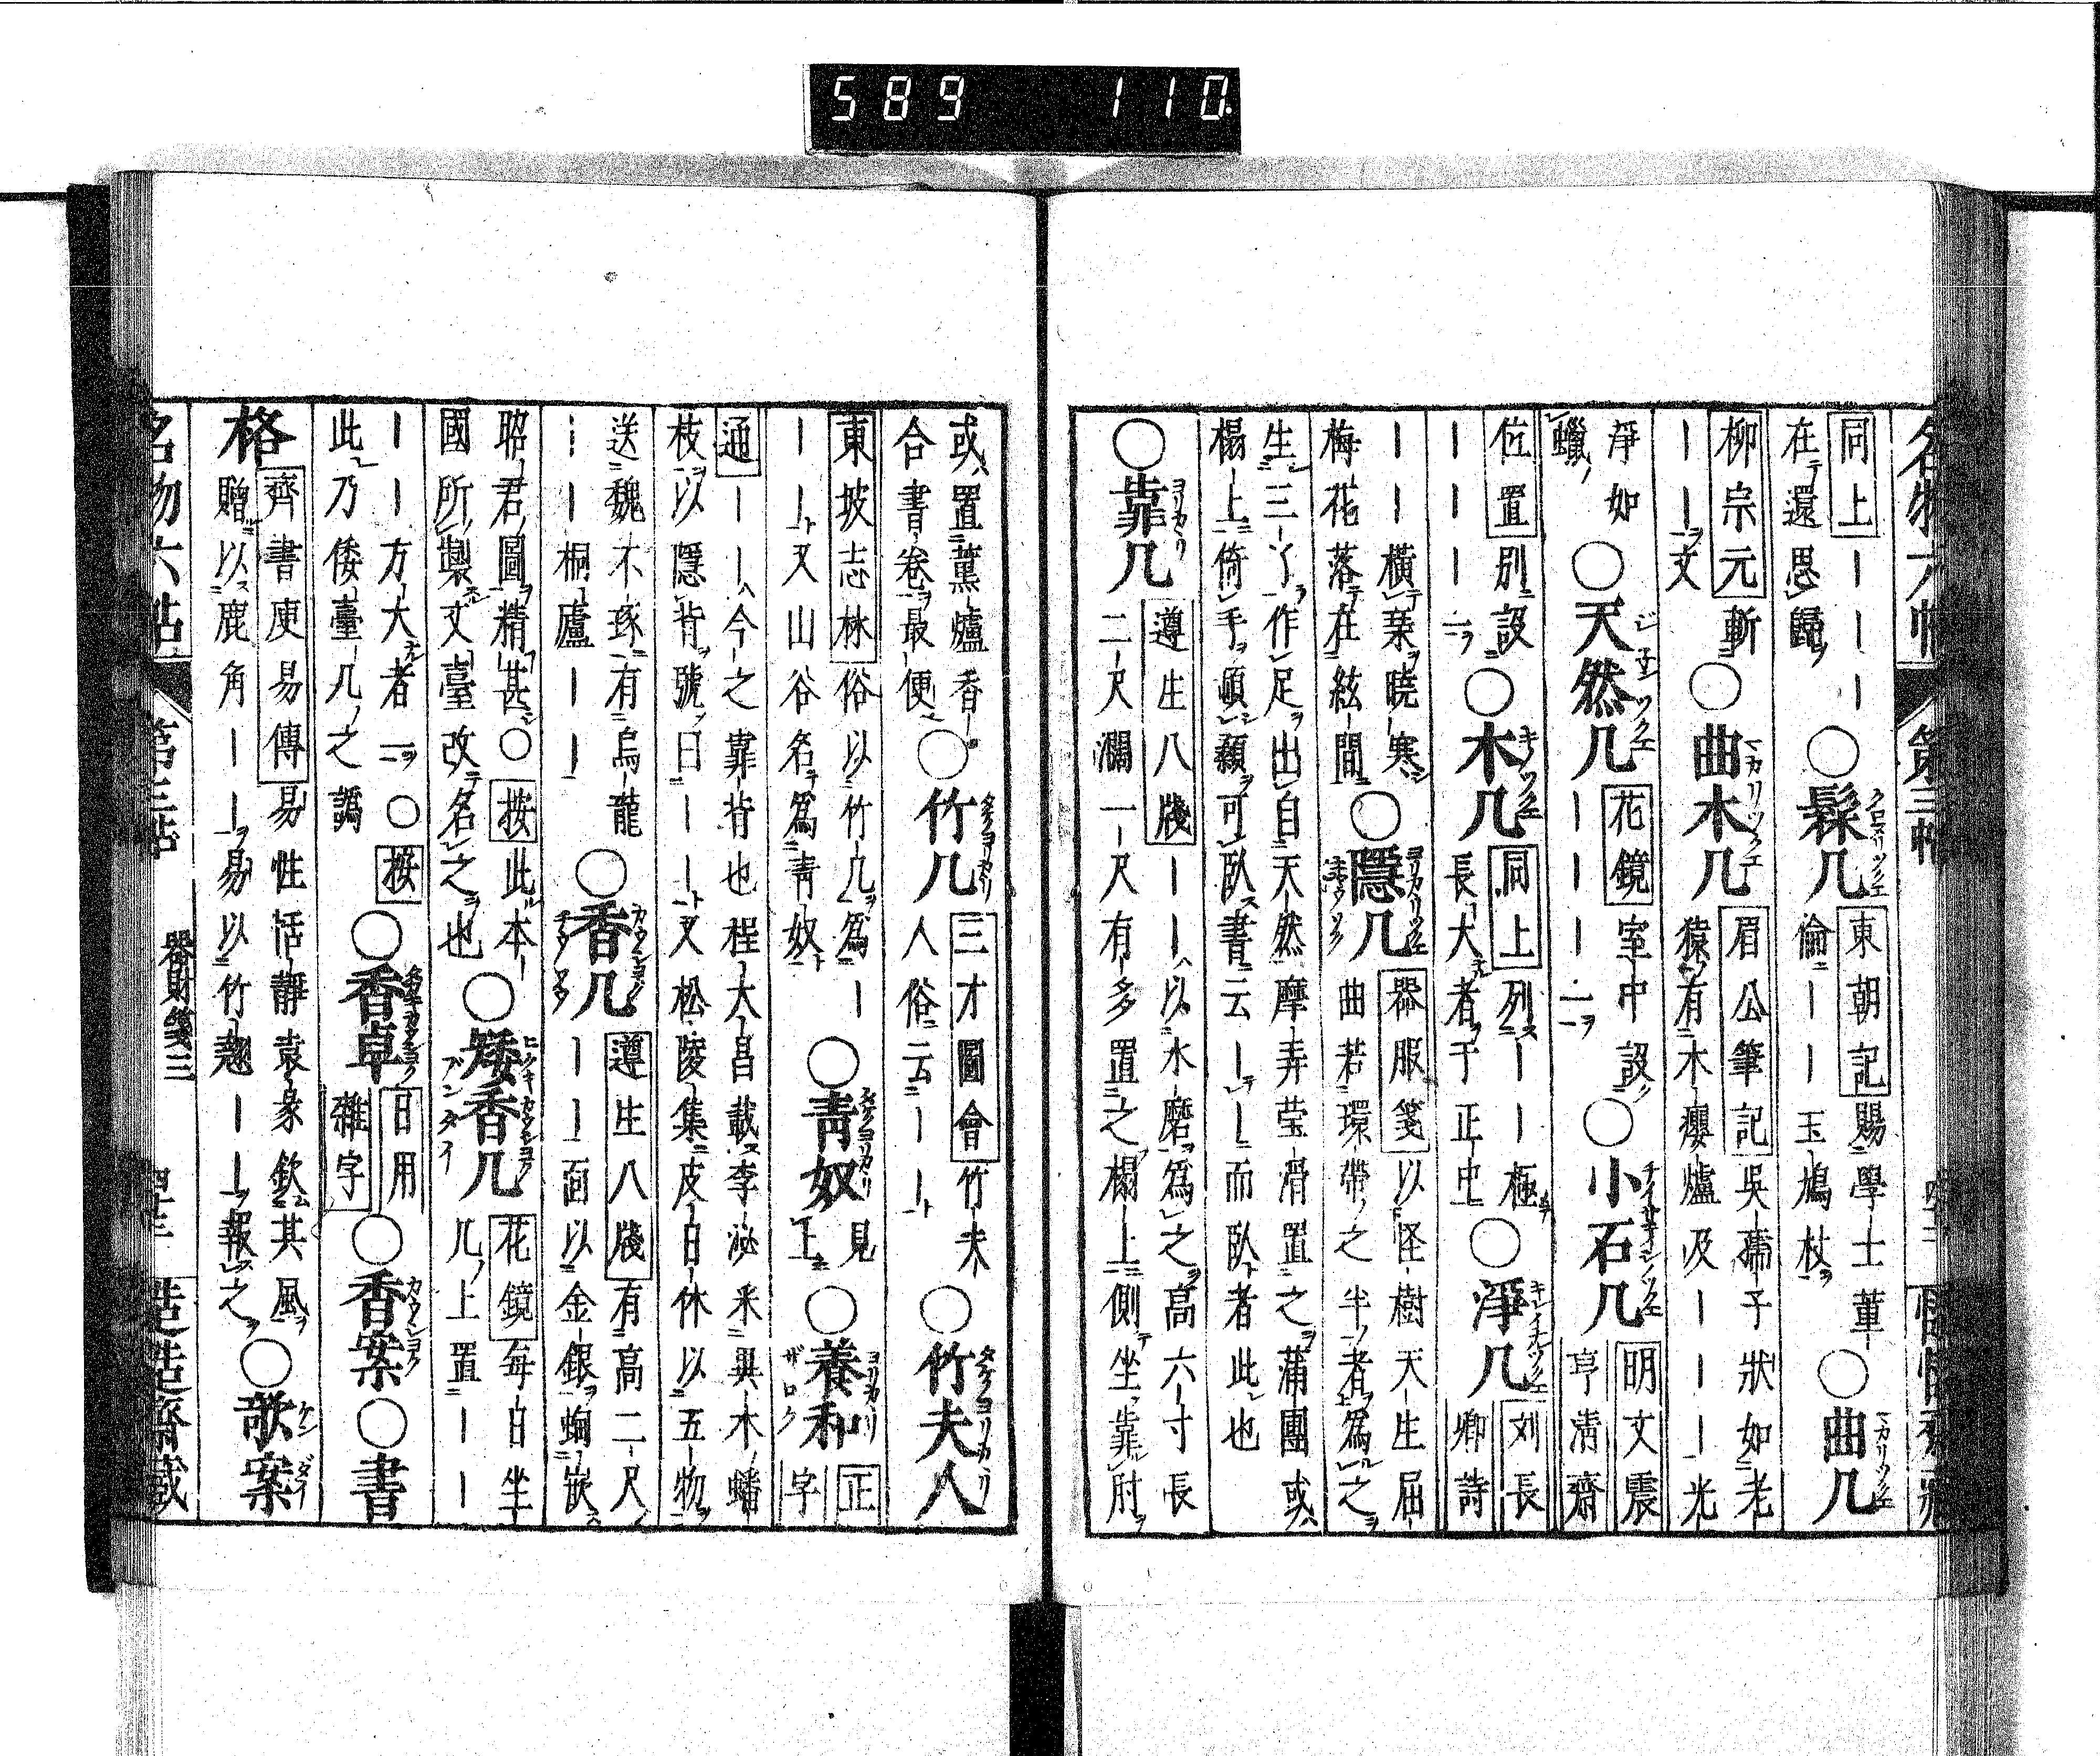 名物六帖 第三帖
同上｜｜｜在還思歸 ○髹几 東朝記賜學士董倫｜｜玉鳩杖 ○曲几
柳宗元斬｜｜文 ○曲木几 眉公筆記吳孺子狀如老猿有木癭爐及｜｜｜光
淨如蠟 ○天然几 花鏡室中設｜｜｜一 ○小石几 明文震亨清齋
位置別設｜｜｜一 ○木几 同上列｜｜極長大者于正中 ○淨几 刘長卿詩
｜｜橫琴曉寒梅花落在絃間 ○隱几 器服箋以怪樹天生屈曲若環帶之半者為之
生三丫作足出自天然摩弄瑩滑置之蒲團或榻上倚手頓顙可臥書云｜｜而臥者此也
○靠几 遵生八牋｜｜以水磨為之高六寸長二尺濶一尺有多置之榻上側坐靠肘
或置薰爐香合書卷最便 ○竹几 三才圖會竹夫人俗云｜｜ ○竹夫人
東坡志林俗以竹几為｜｜｜又山谷名為青奴 ○青奴 見上 ○養和 正字
通｜｜今之靠背也程大昌載李泌采異木蟠枝以隱背號曰｜｜又松陵集皮日休以五物
送魏不琢有烏龍｜｜桐廬｜｜ ○香几 遵生八牋有高二尺｜｜面以金銀蜔嵌
昭君圖精甚○按此本國所製文臺改名之也 ○矮香几 花鏡每日坐几上置｜｜
｜｜方大者一○按此乃倭臺几之譌 ○香卓 日用雜字 ○香案 ○書
格 齊書庾易傳易性恬靜袁彖欽其風贈以鹿角｜｜易以竹翹｜｜報之 ○欹案
名物六帖 第三帖 器財箋三
589 110